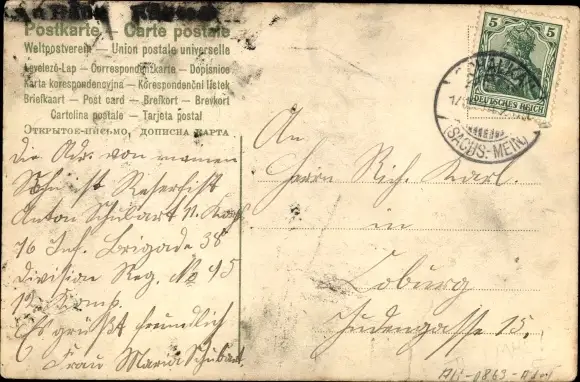 Postkarte — Carte postale
Weltpostverein — Union postale universelle
Levelező-Lap — Correspondenzkarte — Dopisnice
Karta korespondencyjna — Korespondenční lístek
Briefkaart — Post card — Brefkort — Brevkort
Cartolina postale — Tarjeta postal
Открытое-письмо, дописна карта
die Adr. von meinem
Sohn ist Reservist
Anton Schubart
76 Inf. Brigade 38
Division Reg. No 95
12. Komp.
Es grüßt freundlich
Frau Maria Schubart
An
Herrn Rich. Karl.
in
Coburg
Judengasse 15.
5 5
DEUTSCHES REICH
SCHALKAU
(SACHS-MEIN)